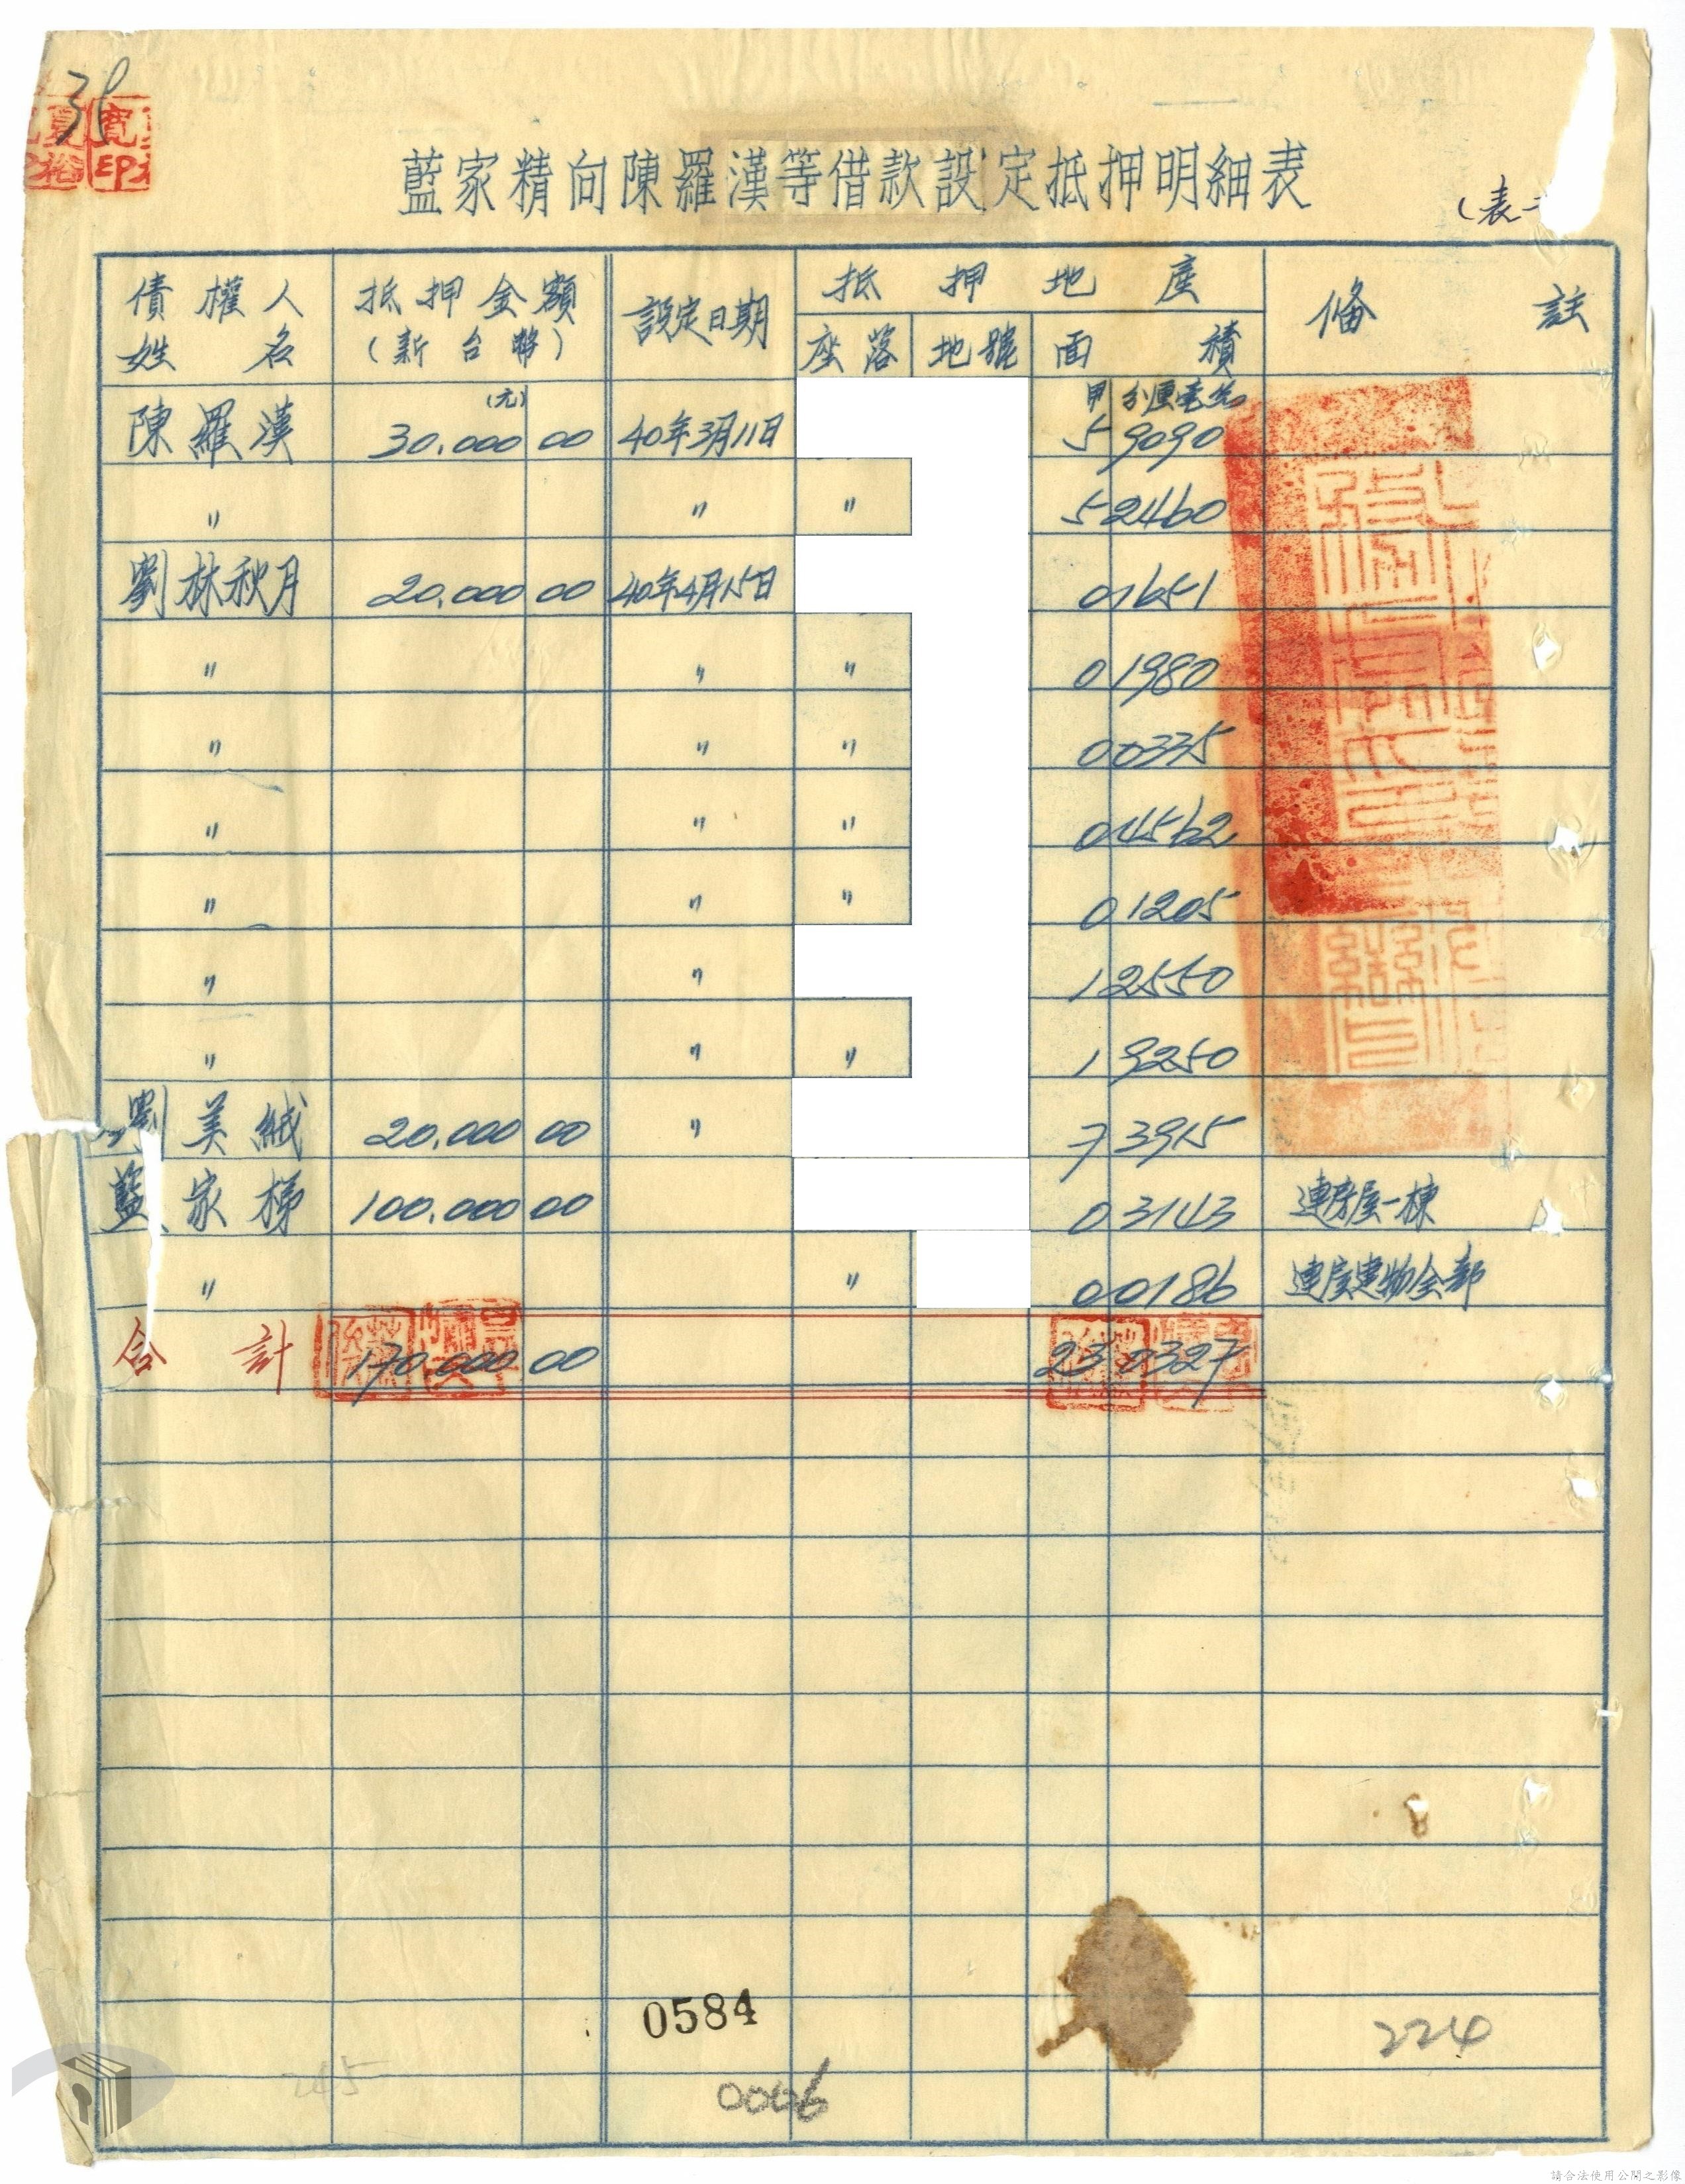 藍家精向陳羅漢等借款設定抵押明細表
(表二
債權人姓名 抵押金額(新台幣) 設定日期 抵押地產 座落 地號 面積 備註
(元) 甲 分厘毫糸
陳羅漢 30.000 00 40年3月11日 5 9090
〃 〃 〃 5 2460
劉林秋月 20.000 00 40年4月15日 0 1651
〃 〃 〃 0 1980
〃 〃 〃 0 0335
〃 〃 〃 0 4562
〃 〃 〃 0 1205
〃 〃 1 2550
〃 〃 〃 1 9250
劉美絨 20.000 00 〃 7 3915
藍家梯 100.000 00 0 3143 連房屋一棟
〃 〃 0 0186 連屋建物全部
合計 170.000 00 23 0327
0584
224
245
0006
請合法使用公開之影像